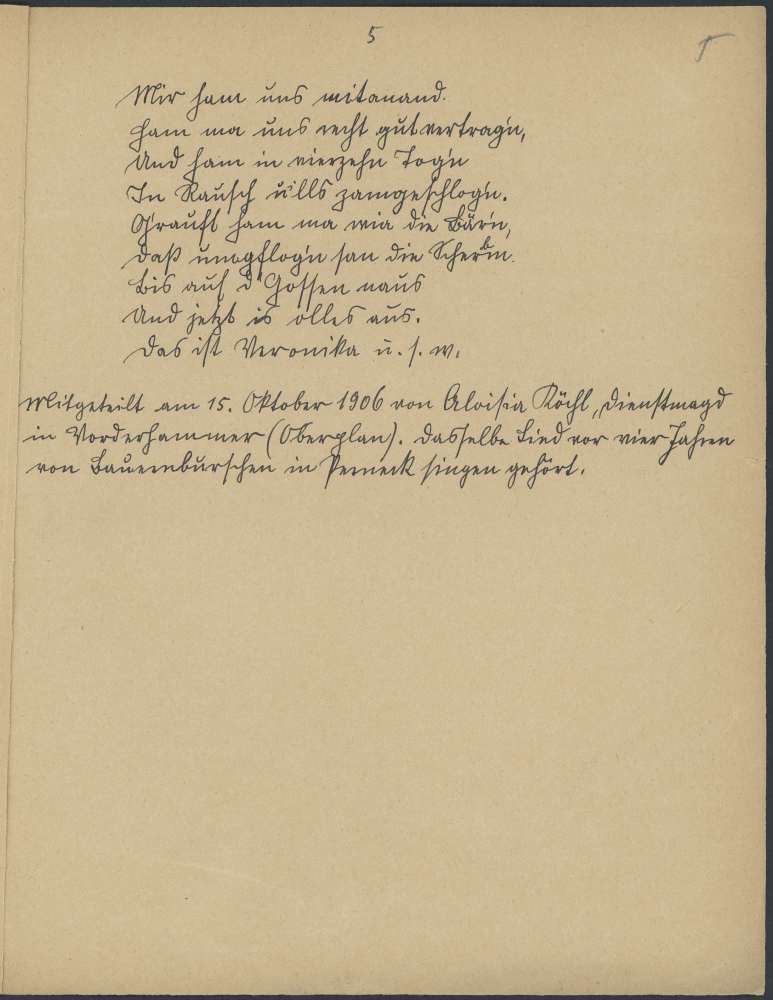 5
Mir ham uns mitanand.
Ham ma uns recht gut vertrag'n,
Und ham in vierzehn Tog'n
In Rausch ulls zamgeschlog'n.
G'rauft ham ma wia die Bär'n,
Daß umagflog'n san die Scherb'n.
Bis auf d' Gossen naus
Und jetzt is olles aus.
Das ist Veronika u. s. w.
Mitgeteilt am 15. Oktober 1906 von Aloisia Köchl, Dienstmagd
in Vorderhammer (Oberplan). Dasselbe Lied vor vier Jahren
von Bauernburschen in Perneck singen gehört.